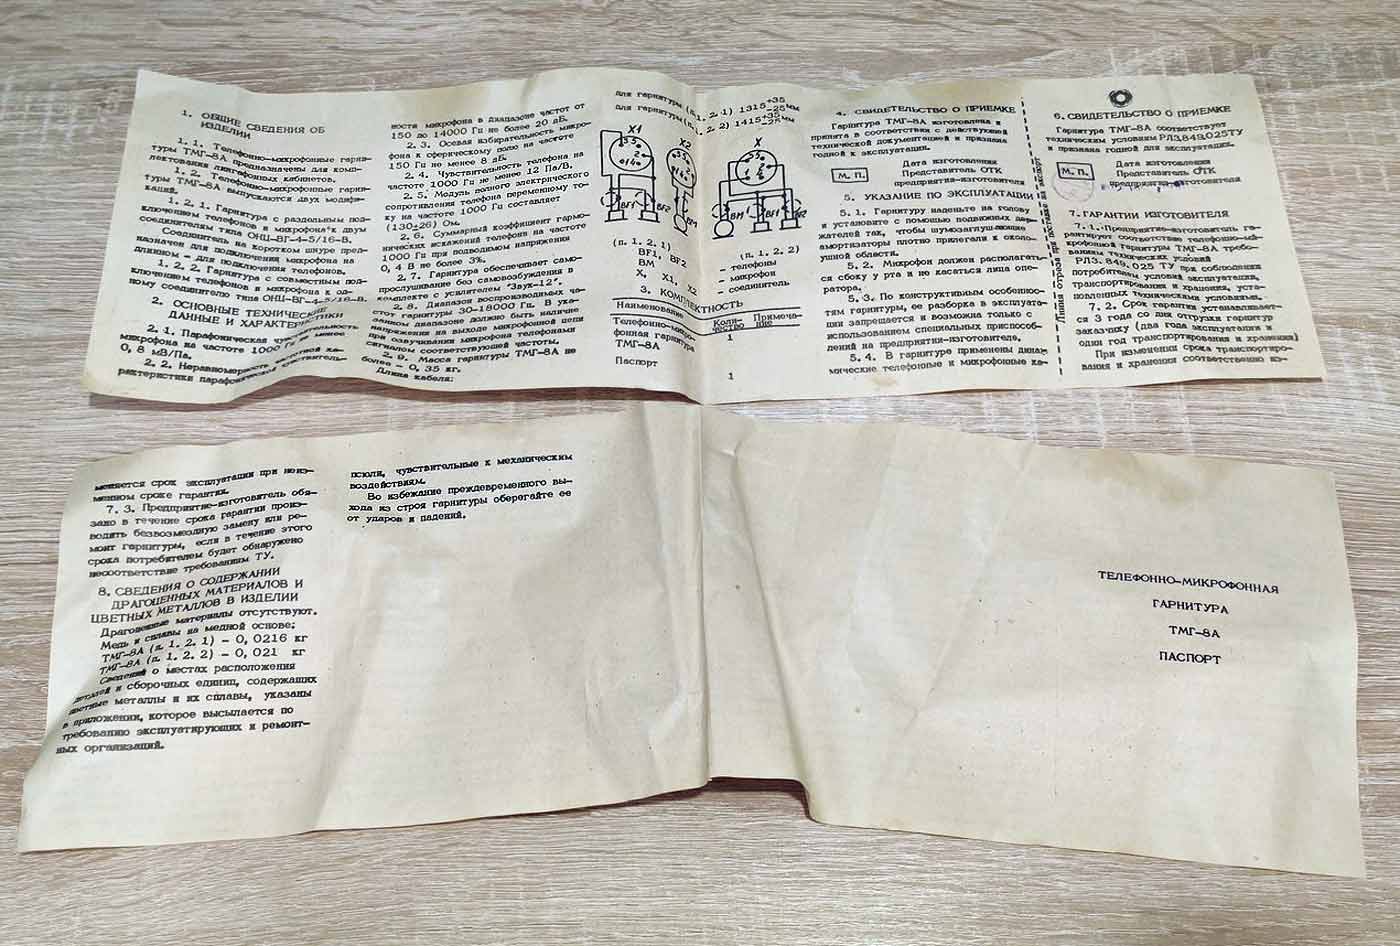 1. ОБЩИЕ СВЕДЕНИЯ ОБ
ИЗДЕЛИИ
1. 1. Телефонно-микрофонные гарни-
туры ТМГ-8А предназначены для комп-
лектования лингафонных кабинетов.
1. 2. Телефонно-микрофонные гарни-
туры ТМГ-8А выпускаются двух модифи-
каций.
1. 2. 1. Гарнитура с раздельным под-
ключением телефонов и микрофона к двум
соединителям типа ОНЦ-ВГ-4-5/16-В.
Соединитель на коротком шнуре пред-
назначен для подключения микрофона на
длинном - для подключения телефонов.
1. 2. 2. Гарнитура с совместным под-
ключением телефонов и микрофона к од-
ному соединителю типа ОНЦ-ВГ-4-5/16-В.
2. ОСНОВНЫЕ ТЕХНИЧЕСКИЕ
ДАННЫЕ И ХАРАКТЕРИСТИКИ
2. 1. Парафоническая чувствительность
микрофона на частоте 1000 Гц не менее
0, 8 мВ/Па.
2. 2. Неравномерность частотной ха-
рактеристики парафонической чувствитель-
ности микрофона в диапазоне частот от
150 до 14000 Гц не более 20 дБ.
2. 3. Осевая избирательность микро-
фона к сферическому полю на частоте
150 Гц не менее 8 дБ.
2. 4. Чувствительность телефона на
частоте 1000 Гц не менее 12 Па/В.
2. 5. Модуль полного электрического
сопротивления телефона переменному то-
ку на частоте 1000 Гц составляет
(130±26) Ом.
2. 6. Суммарный коэффициент гармо-
нических искажений телефона на частоте
1000 Гц при подводимом напряжении
0, 4 В не более 3%.
2. 7. Гарнитура обеспечивает само-
прослушивание без самовозбуждения в
комплекте с усилителем "Звук-12".
2. 8. Диапазон воспроизводимых ча-
стот гарнитуры 30-18000 Гц. В ука-
занном диапазоне должно быть наличие
напряжения на выходе микрофонной цепи
при озвучивании микрофона телефонами
сигналом соответствующей частоты.
2. 9. Масса гарнитуры ТМГ-8А не
более - 0, 35 кг.
Длина кабеля:
для гарнитуры (п. 2. 1) 1315 +35 -25 мм
для гарнитуры (п. 2. 2) 1415 +35 -25 мм
X1
X2
X
BF1
BF2
BM
BM
BF1
(п. 1. 2. 1)
(п. 1. 2. 2)
BF1, BF2 - телефоны
BM - микрофон
X, X1, X2 - соединитель
3. КОМПЛЕКТНОСТЬ
Наименование
Коли-
чество
Примеча-
ние
Телефонно-микро-
фонная гарнитура
ТМГ-8А
1
Паспорт
1
4. СВИДЕТЕЛЬСТВО О ПРИЕМКЕ
Гарнитура ТМГ-8А изготовлена и
принята в соответствии с действующей
технической документацией и признана
годной к эксплуатации.
М. П.
Дата изготовления
Представитель ОТК
предприятия-изготовителя
5. УКАЗАНИЕ ПО ЭКСПЛУАТАЦИИ
5. 1. Гарнитуру наденьте на голову
и установите с помощью подвижных дер-
жателей так, чтобы шумозаглушающие
амортизаторы плотно прилегали к около-
ушной области.
5. 2. Микрофон должен располагать-
ся сбоку у рта и не касаться лица опе-
ратора.
5. 3. По конструктивным особеннос-
тям гарнитуры, ее разборка в эксплуата-
ции запрещается и возможна только с
использованием специальных приспособ-
лений на предприятии-изготовителе.
5. 4. В гарнитуре применены динам
мические телефонные и микрофонные ка-
Линия отреза при поставке на экспорт
6. СВИДЕТЕЛЬСТВО О ПРИЕМКЕ
Гарнитура ТМГ-8А соответствует
техническим условиям РЛ3.849.025ТУ
и признана годной для эксплуатации.
М. П.
Дата изготовления
Представитель ОТК
предприятия-изготовителя
7. ГАРАНТИИ ИЗГОТОВИТЕЛЯ
7. 1. Предприятие-изготовитель га-
рантирует соответствие телефонно-мик-
рофонной гарнитуры ТМГ-8А требо-
ваниям технических условий
РЛ3. 849. 025 ТУ при соблюдении
потребителем условий эксплуатации,
транспортирования и хранения, уста-
новленных техническими условиями.
7. 2. Срок гарантии устанавливает-
ся 3 года со дня отгрузки гарнитур
заказчику (два года эксплуатации и
один год транспортирования и хранения)
При изменении срока транспортиро-
вания и хранения соответственно из-
меняется срок эксплуатации при неиз-
менном сроке гарантии.
7. 3. Предприятие-изготовитель обя-
зано в течение срока гарантии произ-
водить безвозмездную замену или ре-
монт гарнитуры, если в течение этого
срока потребителем будет обнаружено
несоответствие требованиям ТУ.
8. СВЕДЕНИЯ О СОДЕРЖАНИИ
ДРАГОЦЕННЫХ МАТЕРИАЛОВ И
ЦВЕТНЫХ МЕТАЛЛОВ В ИЗДЕЛИИ
Драгоценные материалы отсутствуют.
Медь и сплавы на медной основе:
ТМГ-8А (п. 1. 2. 1) - 0, 0216 кг
ТМГ-8А (п. 1. 2. 2) - 0, 021 кг
Сведения о местах расположения
деталей и сборочных единиц, содержащих
цветные металлы и их сплавы, указаны
в приложении, которое высылается по
требованию эксплуатирующих и ремонт-
ных организаций.
псюли, чувствительные к механическим
воздействиям.
Во избежание преждевременного вы-
хода из строя гарнитуры оберегайте ее
от ударов и падений.
ТЕЛЕФОННО-МИКРОФОННАЯ
ГАРНИТУРА
ТМГ-8А
ПАСПОРТ